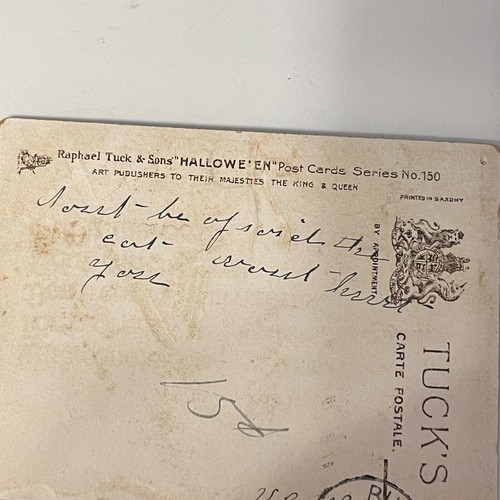 Raphael Tuck & Sons' "HALLOWE'EN" Post Cards Series No. 150
ART PUBLISHERS TO THEIR MAJESTIES THE KING & QUEEN
PRINTED IN SAXONY
dont be afraid the
cat wont hurt
you
BY APPOINTMENT
TUCK'S
CARTE POSTALE.